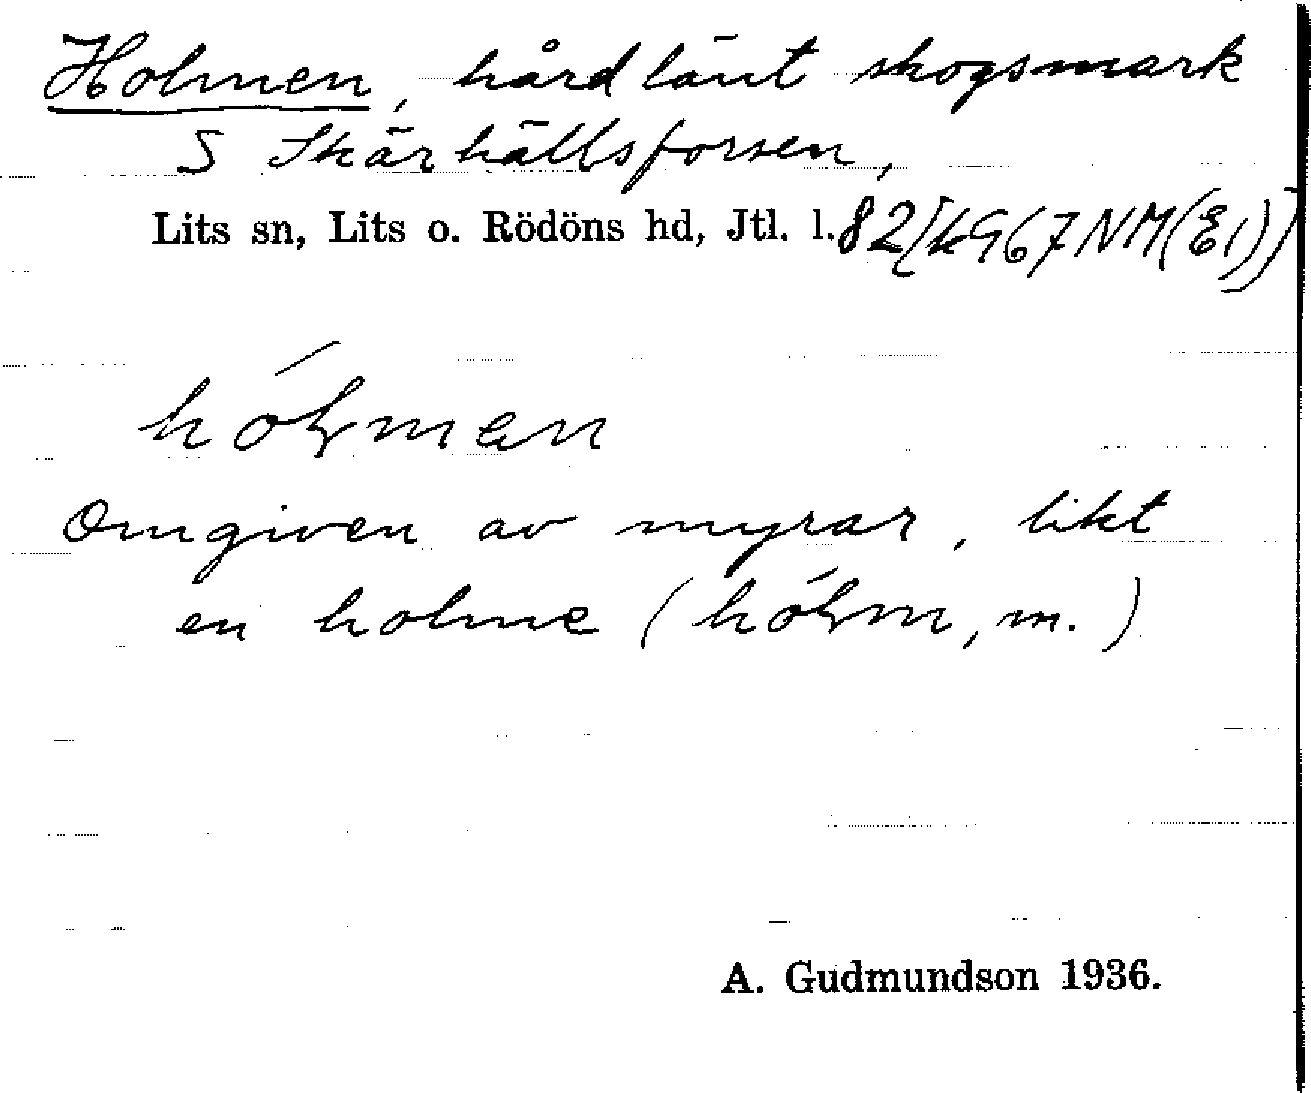 Holmen, hårdlänt skogsmark
S Skärhällsforsen,
Lits sn, Lits o. Rödöns hd, Jtl. l. 82[k967NM(E1)]
hóɫman
Omgiven av myrar, likt
en holme (hóɫm, m.)
A. Gudmundson 1936.